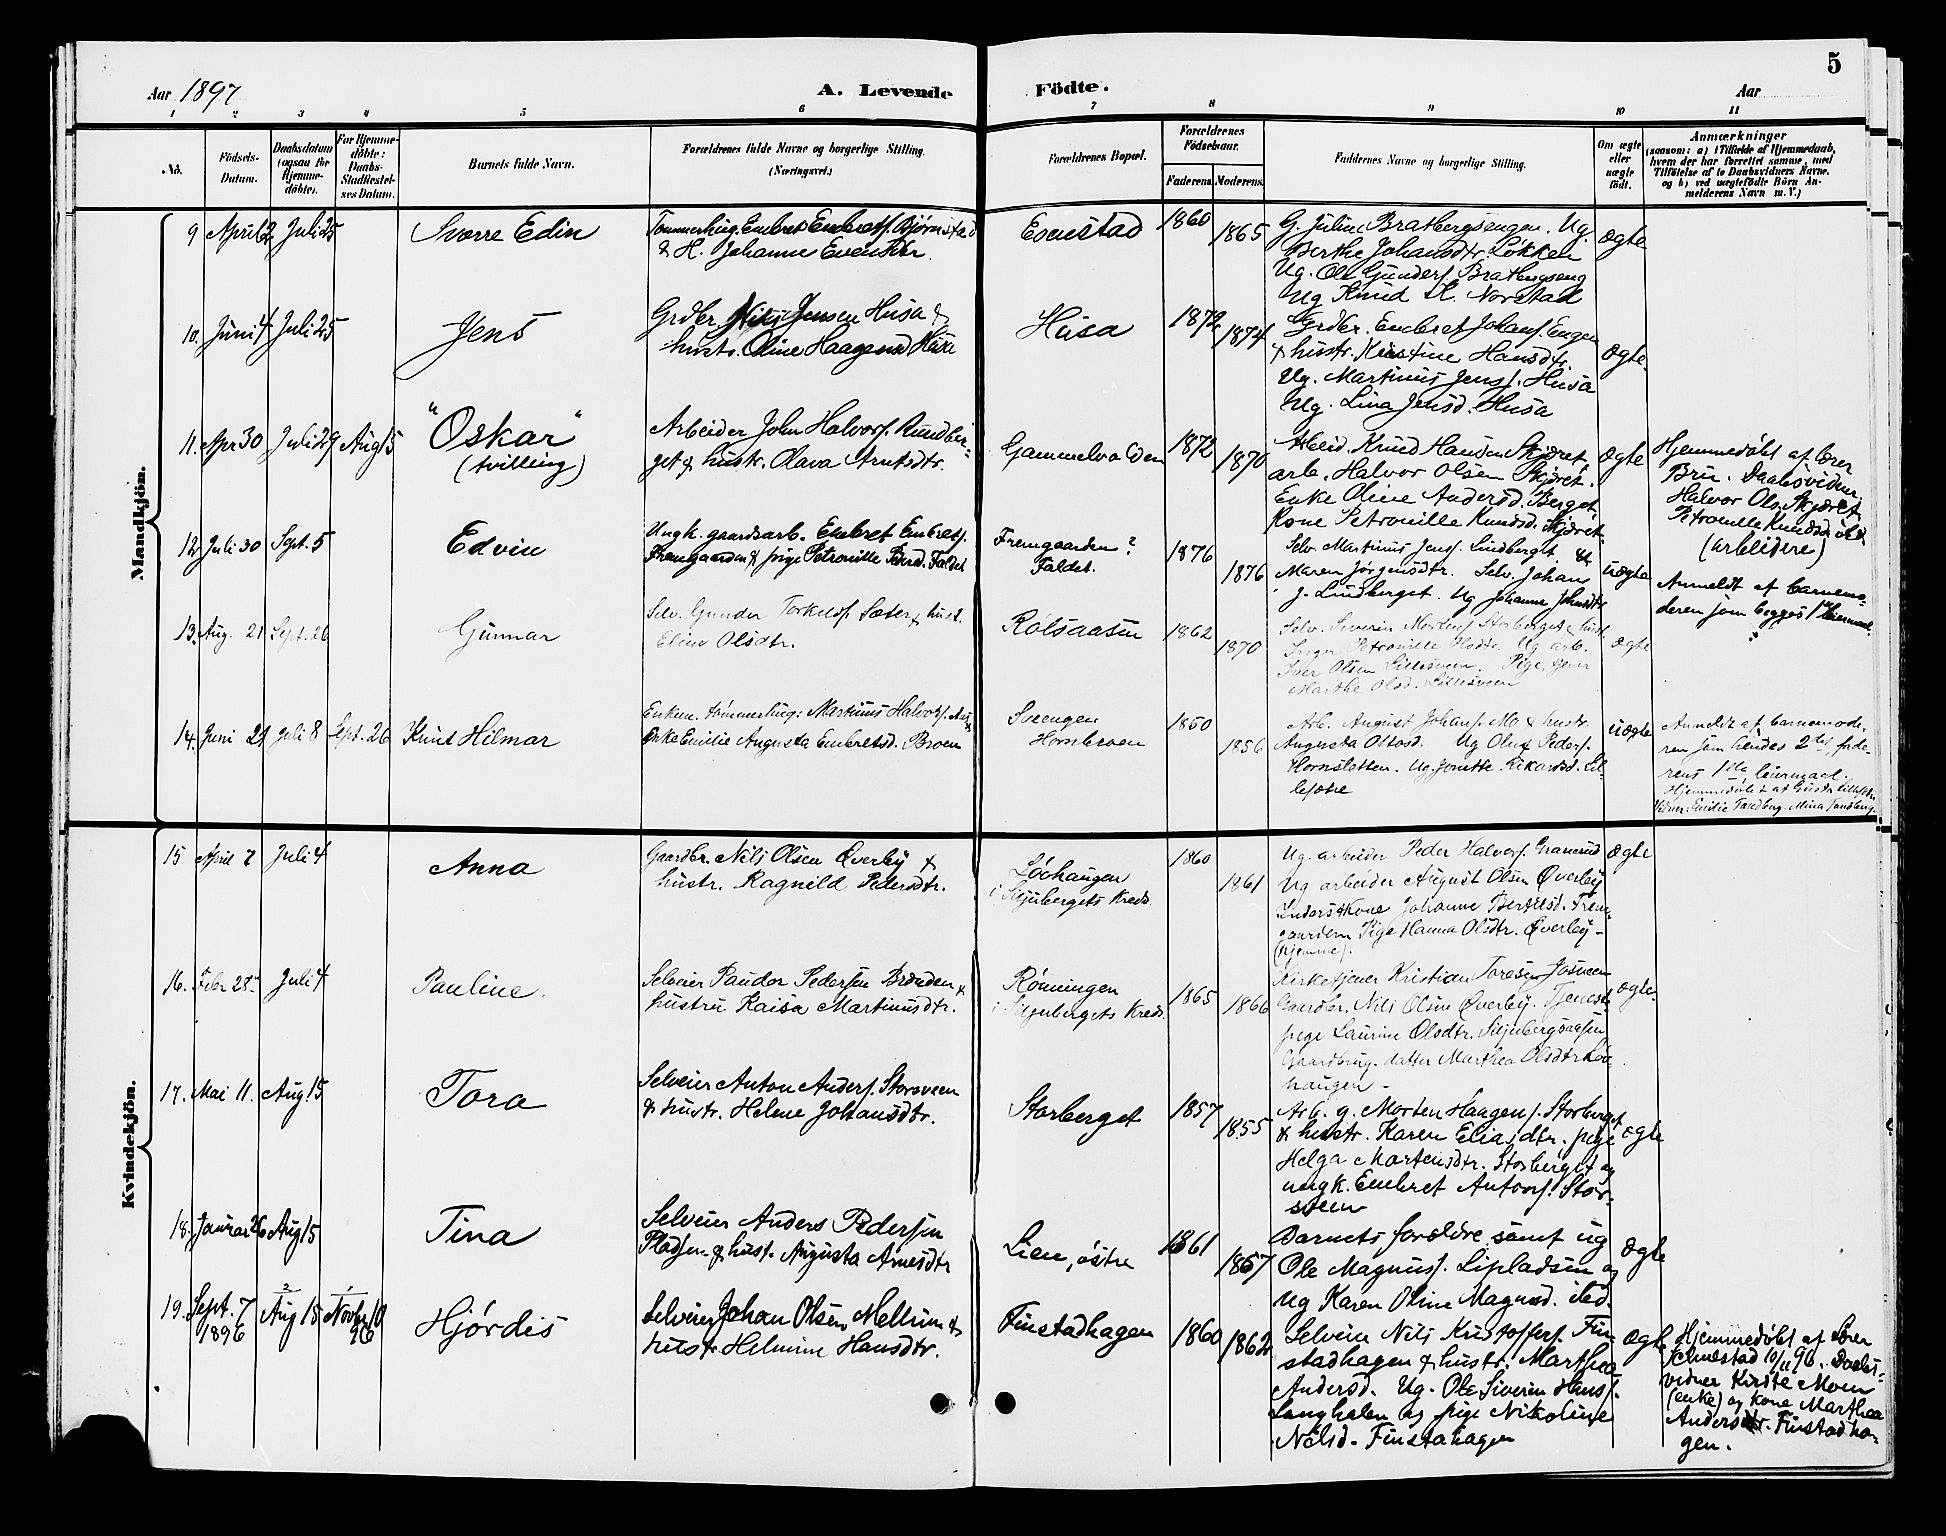 5
Aar 1897
A. Levende Födte.
Aar
1 2 3 4 5 6 7 8 9 10 11
No.
Födsels-Datum.
Daabsdatum (ogsaa for Hjemme-döbte).
For Hjemme-döbte: Daabs-Stadfæstel-ses Datum.
Barnets fulde Navn.
Forældrenes fulde Navne og borgerlige Stilling. (Næringsvei.)
Forældrenes Bopæl.
Forældrenes Födselsaar.
Faderens. Moderens.
Faddernes Navne og borgerlige Stilling.
Om ægte eller uægte födt.
Anmærkninger
(saasom: a) i Tilfælde af Hjemmedaab, hvem der har forrettet samme, med Tilföielse af to Daabsvidners Navne. og b) ved uægtefödte Börn An-melderens Navn m. V.)
Mandkjön.
9 April 2 Juli 25
Sverre Edin
Tømmerhug. Embret Embrets. Bjørnstad
& H. Johanne Evensdtr.
Evenstad
1860
1865
G. Julius Bratbergsengen. Ug.
Berthe Johansdtr. Løkken
Ug. Ole Gunders. Bratbergseng
Ug Knud H. Norstad
ægte
10. Juni 4 Juli 25
Jens
Grdbr Nils Jensen Husa &
hustr. Oline Haagensd Husa
Husa
1872
1874
Grdbr. Embret Johans. Engen
& hustr. Kristine Hansdtr.
Ug. Martinus Jens. Husa
Ug. Lina Jensd. Husa
ægte
11. Apr 30 Juli 29 Aug 15
"Oskar"
(tvilling)
Arbeider John Halvors. Rundber-
get & hustr. Olava Arntsdtr.
Gammelvolden
1872
1870
Arbeid. Knud Hansen Skjæret
arb. Halvor Olsen Skjæret.
Enke Oline Andersd. Berget
Kone Petronille Knudsd. Skjæret
ægte
Hjemmedøbt af lærer
Bru. Daabsvidner
Halvor Ols. Skjæret
Petronille Knudsd.
(arbeidere)
12. Juli 30 Sept. 5
Edvin
Ungk. gaardsarb. Embret Embrets.
Fremgaarden & pige Petronille Faldet
Fremgaarden?
Faldet.
1876
1876
Selv. Martinus Jens. Lindberget &
Maren Jørgensdtr. Selv. Johan
J. Lindberget. Ug Johanne
uægte
Anmeldt af barnemo-
deren som begges 1ste leiermaal.
13. Aug. 21 Sept. 26
Gunnar
Selv. Gunder Torkelds. Sæter & hust.
Eline Olsdtr.
Rolsaasen
1862
1870
Selv. Severin Mortens. Storberget & hust
Inger Petronille Olsdtr. Ug arb.
Iver Olsen Lillesveen. Pige, tjener
Marthe Olsd. Lillesveen
ægte
14. Juni 21 Juli 8 Sept. 26
Knut Hilmar
Enkem. tømmerhug: Martinus Halvors.
Enke Emilie Augusta Embretsd. Broen
Svengen
Hornbroen
1850
1856
Arb. August Johans. Mo & hustr.
Augusta Ottosd. Ug Oluf Peders.
Hornsletten. Ug. Jonette Rikardsd. Lil-
lesætre
uægte
Anmeldt af barnemode-
ren som hendes 2det, fade-
rens 1ste leiermaal.
Hjemmedøbt af
Vidner: Emilie Tandberg, Mina Tandberg
Kvindekjön.
15 April 7 Juli 4
Anna
Gaardbr. Nils Olsen Øverby &
hustr. Ragnild Pedersdtr.
Løvhaugen
i Siljubergets Kreds.
1860
1861
Ug. arbeider Peder Halvors. Granerud
Ug arbeider August Olsen Øverby
Inderstkone Johanne Berthesd. Frem-
gaarden Pige Hanna Olsdtr. Øverby-
(hjemme).
ægte
16. Febr 28 Juli 4
Pauline.
Selveier Paudor Pedersen Brænden &
hustru Kaisa Martinusdtr.
Rønningen
i Siljubergets Kreds.
1865
1866
Kirketjener Kristian Toresen Josveen
Gaardbr. Nils Olsen Øverby. Tjeneste-
pige Laurine Olsdtr. Siljubergsaasen
Gaardbrug. datter Marthea Olsdtr. Løv-
haugen -
ægte.
17. Mai 11. Aug 15
Tora
Selveier Anton Anders. Storsveen
& hustr. Helene Johansdtr.
Storberget
1857
1855
Arb. g. Morten Haagens. Storberget
& hustr. Karen Eliasdtr. pige
Helga Mortensdtr. Storberget og
ungk. Embret Antons. Stor-
sveen
ægte
18. Januar 26 Aug 15
Tina
Selveier Anders Pedersen
Pladsen & hust. Augusta Arnesdtr
Lien, østre
1861
1867
Barnets forældre samt ug
Ole Magnus. Lipladsen og
Ug Karen Oline Magnusd. ibid.
ægte
19. Sept. 7 1896 Aug 15 Novbr 10 96
Hjørdis
Selveier Johan Olsen Mellum &
hustr Helmine Hansdtr.
Finstadhagen
1860
1862
Selveier Nils Kristoffers. Fin-
stadhagen & hustr. Marthea
Andersd. Ug. Ole Siverin Hans.
Langhalen og pige Nikoline
Nilsd. Finstahagen
ægte
Hjemmedøbt af Lærer
Schnestad 10/11 96. Daabs-
vidner Kirste Moen
(enke) og kone Marthea
Andersdtr. Finstadha-
gen.